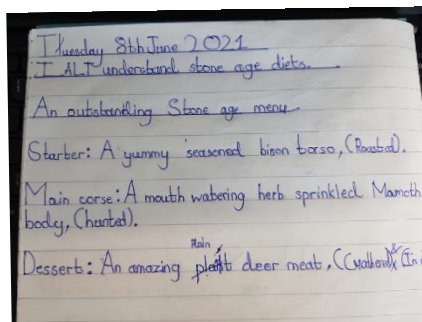 Tuesday 8th June 2021
I ALT understand stone age diets.
An outstandling Stone age menu
Starter: A yummy seasoned bison torso, (Roasted).
Main corse: A mouth watering herb sprinkled Mamoth
body, (hunted).
Main
Dessert: An amazing deer meat, & (In